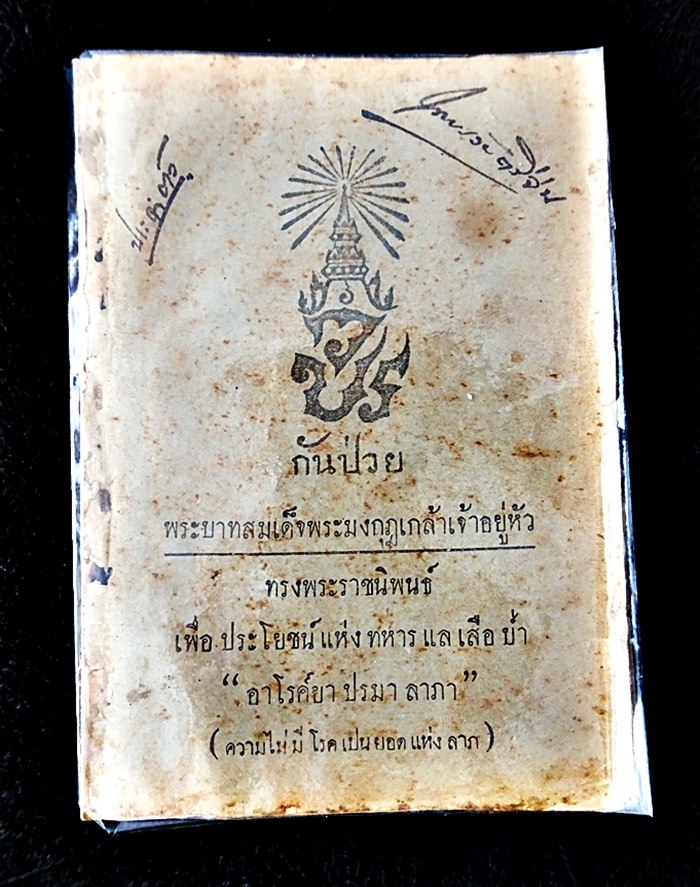 กันป่วย
พระบาทสมเด็จพระมงกุฎเกล้าเจ้าอยู่หัว
ทรงพระราชนิพนธ์
เพื่อ ประโยชน์ แห่ง ทหาร แล เสือ ป่า
“ อาโรค์ยา ปรมา ลาภา ”
( ความไม่ มี โรค เปน ยอด แห่ง ลาภ )